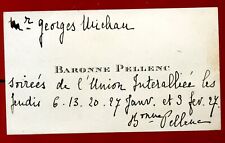 Mr Georges Michau
BARONNE PELLENC
Soirées de l'Union Interalliée les
Jeudis 6-13. 20. 27 Janv. et 3 fev. 27.
Bonne Pellenc